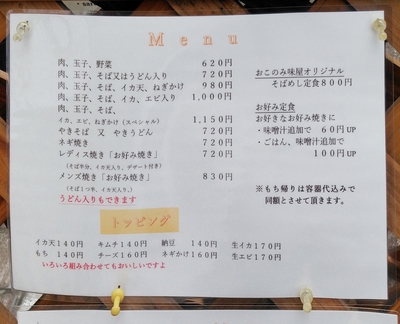 Menu
肉、玉子、野菜 620円
肉、玉子、そば又はうどん入り 720円
肉、玉子、そば、イカ天、ねぎかけ 980円
肉、玉子、そば、イカ、エビ入り 1,000円
肉、玉子、そば、
イカ、エビ、ねぎかけ(スペシャル) 1,150円
やきそば 又 やきうどん 720円
ネギ焼き 720円
レディス焼き「お好み焼き」 720円
(そば半分、イカ天入り、デザート付き)
メンズ焼き「お好み焼き」 830円
(そば1つ半、イカ天入り、)
うどん入りもできます
おこのみ味屋オリジナル
そばめし定食800円
お好み定食
お好きなお好み焼きに
・味噌汁追加で 60円UP
・ごはん、味噌汁追加で
100円UP
※もち帰りは容器代込みで
同額とさせて頂きます。
トッピング
イカ天140円 キムチ140円 納豆 140円 生イカ170円
もち 140円 チーズ160円 ネギかけ160円 生エビ170円
いろいろ組み合わせてもおいしいですよ